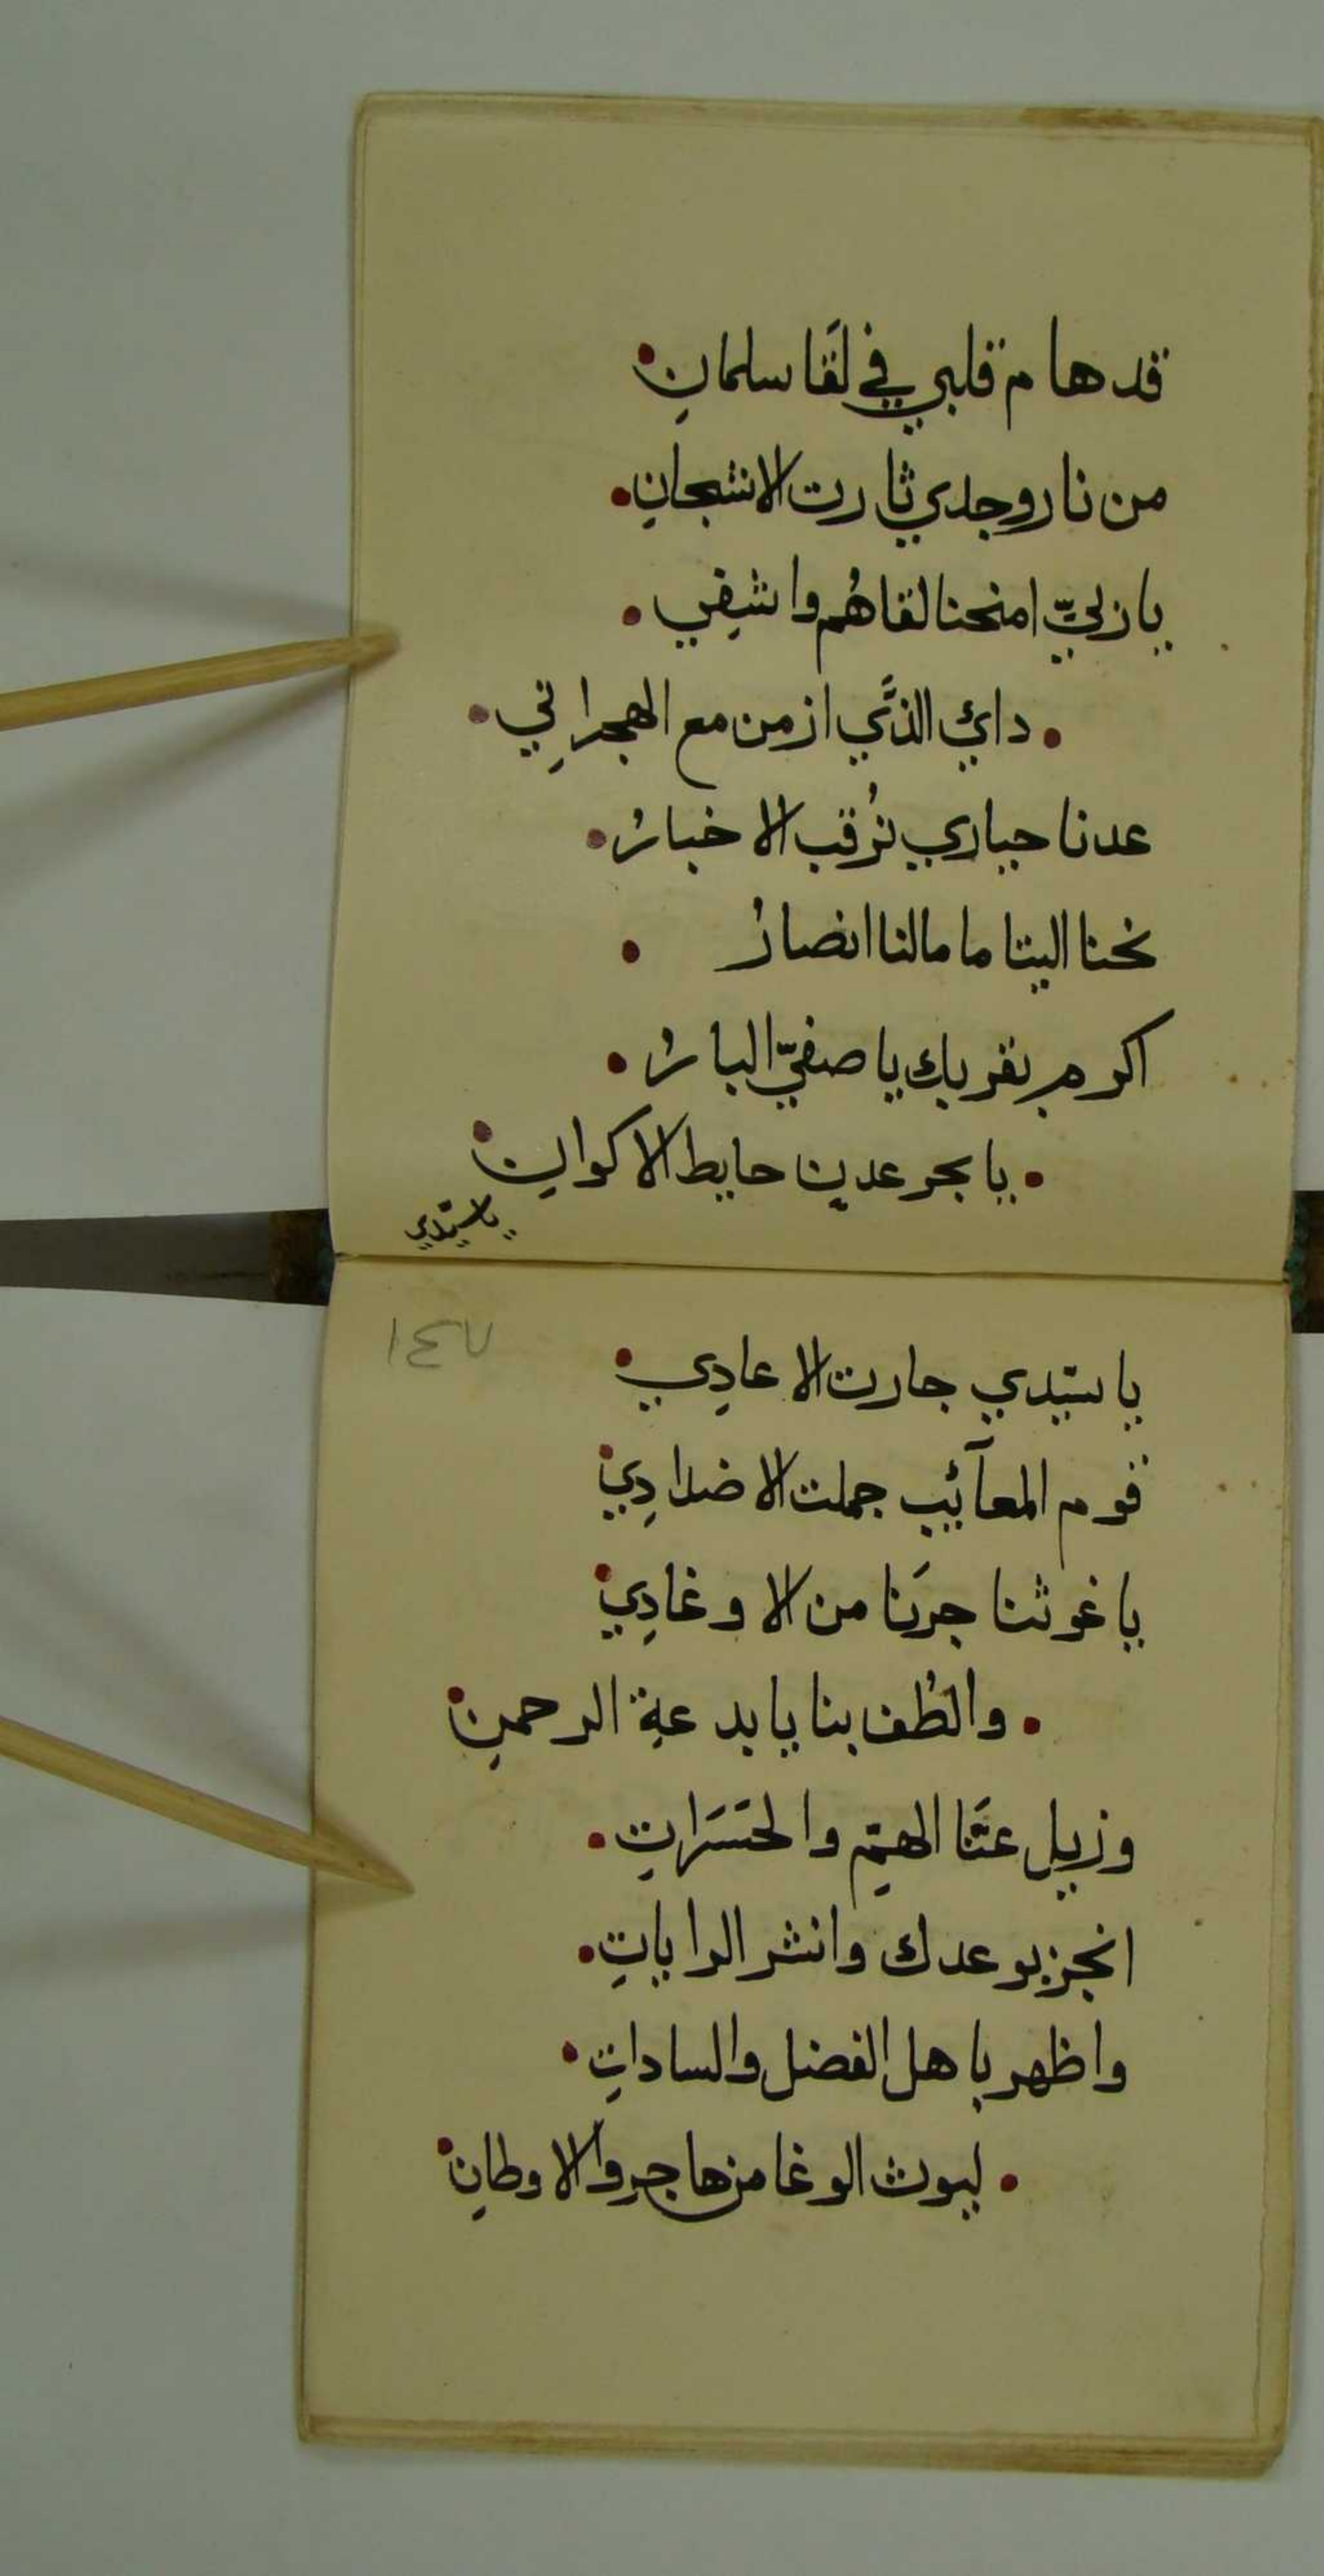 قد هام قلبي في لَقَا سلمانِ
من نار وجدي ثارت الاشجانِ
يا زليّ امنحنا لقاهُم واشفِي
دائي الذَّي ازمن مع الهجرانِي
عدنا حيارى نُرقب الاخبارْ
نحنا اليتاما مالنا انصارْ
اكرم بقربك يا صفيّ البارْ
يا بحر عدنٍ حايط الاكوانِ
يا سيّدي
١٤٧
يا سيّدي جارت الاعادِي
قوم المعآئب جملت الاضدادِي
يا غوثنا جرَنا من الاوغادِي
والطُف بنا يا بدعة الرحمنِ
وزيل عنَّا الهمِّ والحَسَرَاتِ
انجز بوعدك وانشر الراياتِ
واظهر باهل الفضل والساداتِ
ليوث الوغا من هاجروا الاوطانِ